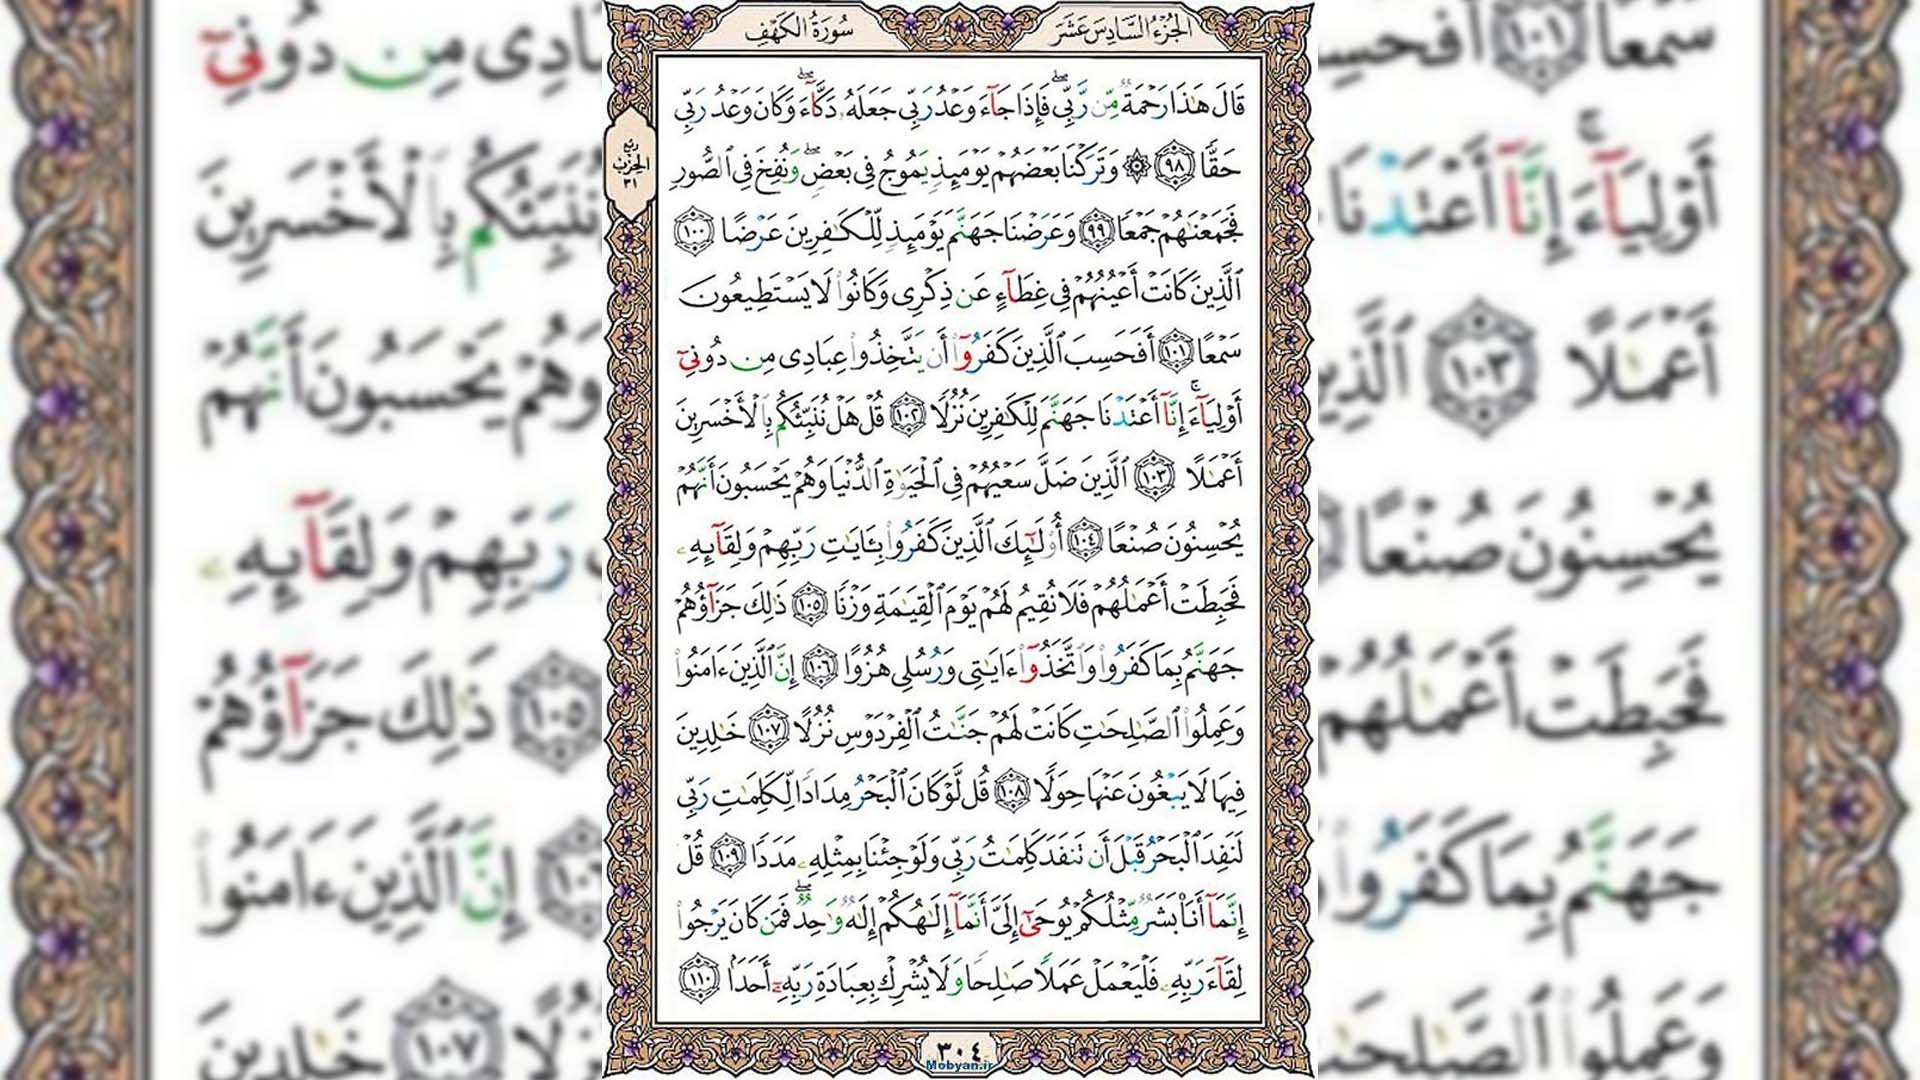 الجُزءُ السَّادِسَ عَشَرَ
سُورَةُ الكَهْفِ
قَالَ هَٰذَا رَحْمَةٌ مِّن رَّبِّي ۖ فَإِذَا جَآءَ وَعْدُ رَبِّي جَعَلَهُۥ دَكَّآءَ ۖ وَكَانَ وَعْدُ رَبِّي
حَقًّا ٩٨ ۞ وَتَرَكْنَا بَعْضَهُمْ يَوْمَئِذٍ يَمُوجُ فِي بَعْضٍ ۖ وَنُفِخَ فِي ٱلصُّورِ
فَجَمَعْنَٰهُمْ جَمْعًا ٩٩ وَعَرَضْنَا جَهَنَّمَ يَوْمَئِذٍ لِّلْكَٰفِرِينَ عَرْضًا ١٠٠
ٱلَّذِينَ كَانَتْ أَعْيُنُهُمْ فِي غِطَآءٍ عَن ذِكْرِي وَكَانُوا۟ لَا يَسْتَطِيعُونَ
سَمْعًا ١٠١ أَفَحَسِبَ ٱلَّذِينَ كَفَرُوٓا۟ أَن يَتَّخِذُوا۟ عِبَادِي مِن دُونِيٓ
أَوْلِيَآءَ ۚ إِنَّآ أَعْتَدْنَا جَهَنَّمَ لِلْكَٰفِرِينَ نُزُلًا ١٠٢ قُلْ هَلْ نُنَبِّئُكُم بِٱلْأَخْسَرِينَ
أَعْمَٰلًا ١٠٣ ٱلَّذِينَ ضَلَّ سَعْيُهُمْ فِي ٱلْحَيَوٰةِ ٱلدُّنْيَا وَهُمْ يَحْسَبُونَ أَنَّهُمْ
يُحْسِنُونَ صُنْعًا ١٠٤ أُو۟لَٰٓئِكَ ٱلَّذِينَ كَفَرُوا۟ بِـَٔايَٰتِ رَبِّهِمْ وَلِقَآئِهِۦ
فَحَبِطَتْ أَعْمَٰلُهُمْ فَلَا نُقِيمُ لَهُمْ يَوْمَ ٱلْقِيَٰمَةِ وَزْنًا ١٠٥ ذَٰلِكَ جَزَآؤُهُمْ
جَهَنَّمُ بِمَا كَفَرُوا۟ وَٱتَّخَذُوٓا۟ ءَايَٰتِي وَرُسُلِي هُزُوًا ١٠٦ إِنَّ ٱلَّذِينَ ءَامَنُوا۟
وَعَمِلُوا۟ ٱلصَّٰلِحَٰتِ كَانَتْ لَهُمْ جَنَّٰتُ ٱلْفِرْدَوْسِ نُزُلًا ١٠٧ خَٰلِدِينَ
فِيهَا لَا يَبْغُونَ عَنْهَا حِوَلًا ١٠٨ قُل لَّوْ كَانَ ٱلْبَحْرُ مِدَادًا لِّكَلِمَٰتِ رَبِّي
لَنَفِدَ ٱلْبَحْرُ قَبْلَ أَن تَنفَدَ كَلِمَٰتُ رَبِّي وَلَوْ جِئْنَا بِمِثْلِهِۦ مَدَدًا ١٠٩ قُلْ
إِنَّمَآ أَنَا۠ بَشَرٌ مِّثْلُكُمْ يُوحَىٰٓ إِلَيَّ أَنَّمَآ إِلَٰهُكُمْ إِلَٰهٌ وَٰحِدٌ ۖ فَمَن كَانَ يَرْجُوا۟
لِقَآءَ رَبِّهِۦ فَلْيَعْمَلْ عَمَلًا صَٰلِحًا وَلَا يُشْرِكْ بِعِبَادَةِ رَبِّهِۦٓ أَحَدًۢا ١١٠
ربع
الحزب
٣١
٣٠٤
Mobyan.ir